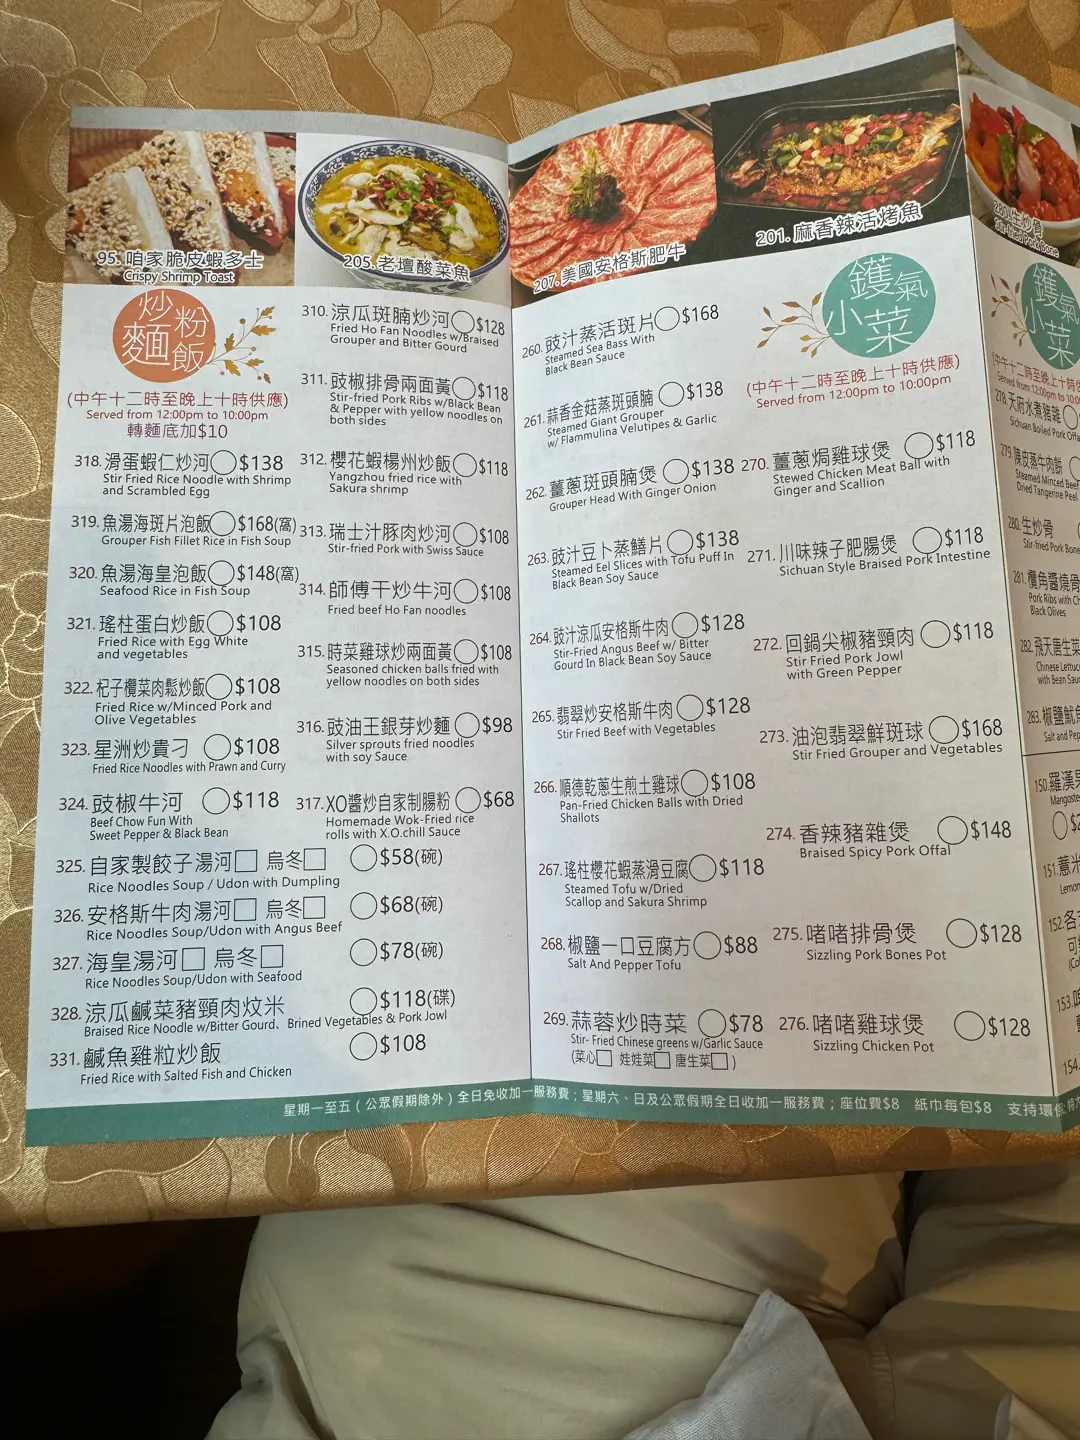 95. 咱家脆皮蝦多士
Crispy Shrimp Toast
205.老壇酸菜魚
207.美國安格斯肥牛
201. 麻香辣活烤魚
Stir-fried Pork Bone
炒粉
麵飯
(中午十二時至晚上十時供應)
Served from 12:00pm to 10:00pm
轉麵底加$10
318.滑蛋蝦仁炒河 $138
Stir Fried Rice Noodle with Shrimp
and Scrambled Egg
319.魚湯海斑片泡飯 $168(窩)
Grouper Fish Fillet Rice in Fish Soup
320.魚湯海皇泡飯 $148(窩)
Seafood Rice in Fish Soup
321.瑤柱蛋白炒飯 $108
Fried Rice with Egg White
and vegetables
322.杞子欖菜肉鬆炒飯 $108
Fried Rice w/Minced Pork and
Olive Vegetables
323.星洲炒貴刁 $108
Fried Rice Noodles with Prawn and Curry
324.豉椒牛河 $118
Beef Chow Fun With
Sweet Pepper & Black Bean
310.涼瓜斑腩炒河 $128
Fried Ho Fan Noodles w/Braised
Grouper and Bitter Gourd
311.豉椒排骨兩面黃 $118
Stir-fried Pork Ribs w/Black Bean
& Pepper with yellow noodles on
both sides
312.櫻花蝦楊州炒飯 $118
Yangzhou fried rice with
Sakura shrimp
313.瑞士汁豚肉炒河 $108
Stir-fried Pork with Swiss Sauce
314.師傅干炒牛河 $108
Fried beef Ho Fan noodles
315.時菜雞球炒兩面黃 $108
Seasoned chicken balls fried with
yellow noodles on both sides
316.豉油王銀芽炒麵 $98
Silver sprouts fried noodles
with soy Sauce
317.XO醬炒自家制腸粉 $68
Homemade Wok-Fried rice
rolls with X.O.chill Sauce
325.自家製餃子湯河 烏冬 $58(碗)
Rice Noodles Soup / Udon with Dumpling
326.安格斯牛肉湯河 烏冬 $68(碗)
Rice Noodles Soup/Udon with Angus Beef
327.海皇湯河 烏冬 $78(碗)
Rice Noodles Soup/Udon with Seafood
328.涼瓜鹹菜豬頸肉炆米 $118(碟)
Braised Rice Noodle w/Bitter Gourd、Brined Vegetables & Pork Jowl
331.鹹魚雞粒炒飯 $108
Fried Rice with Salted Fish and Chicken
260.豉汁蒸活斑片 $168
Steamed Sea Bass With
Black Bean Sauce
261.蒜香金菇蒸斑頭腩 $138
Steamed Giant Grouper
w/ Flammulina Velutipes & Garlic
262.薑蔥斑頭腩煲 $138
Grouper Head With Ginger Onion
263.豉汁豆卜蒸鱔片 $138
Steamed Eel Slices with Tofu Puff In
Black Bean Soy Sauce
264.豉汁涼瓜安格斯牛肉 $128
Stir-Fried Angus Beef w/ Bitter
Gourd In Black Bean Soy Sauce
265.翡翠炒安格斯牛肉 $128
Stir Fried Beef with Vegetables
266.順德乾蔥生煎土雞球 $108
Pan-Fried Chicken Balls with Dried
Shallots
267.瑤柱櫻花蝦蒸滑豆腐 $118
Steamed Tofu w/Dried
Scallop and Sakura Shrimp
268.椒鹽一口豆腐方 $88
Salt And Pepper Tofu
269.蒜蓉炒時菜 $78
Stir- Fried Chinese greens w/Garlic Sauce
(菜心 娃娃菜 唐生菜 )
鑊氣
小菜
(中午十二時至晚上十時供應)
Served from 12:00pm to 10:00pm
270.薑蔥焗雞球煲 $118
Stewed Chicken Meat Ball with
Ginger and Scallion
271.川味辣子肥腸煲 $118
Sichuan Style Braised Pork Intestine
272.回鍋尖椒豬頸肉 $118
Stir Fried Pork Jowl
with Green Pepper
273.油泡翡翠鮮斑球 $168
Stir Fried Grouper and Vegetables
274.香辣豬雜煲 $148
Braised Spicy Pork Offal
275.啫啫排骨煲 $128
Sizzling Pork Bones Pot
276.啫啫雞球煲 $128
Sizzling Chicken Pot
鑊氣
小菜
(中午十二時至晚上十時
Served from 12:00pm to 10:0
278.天府水煮豬雜
Sichuan Boiled Pork Offa
279.陳皮蒸牛肉餅
Steamed Minced Beef
Dried Tangerine Peel
280.生炒骨
Stir-fried Pork Bone
281.欖角醬燒骨
Pork Ribs with Ch
Black Olives
282.飛天唐生菜
Chinese Lettuc
with Bean Sau
283.椒鹽魷魚
Salt and Pep
150.羅漢果
Mangostee
151.薏米
Lemon
152.各
可
153.
154.
星期一至五（公眾假期除外）全日免收加一服務費；星期六、日及公眾假期全日收加一服務費；座位費$8 紙巾每包$8 支持環保